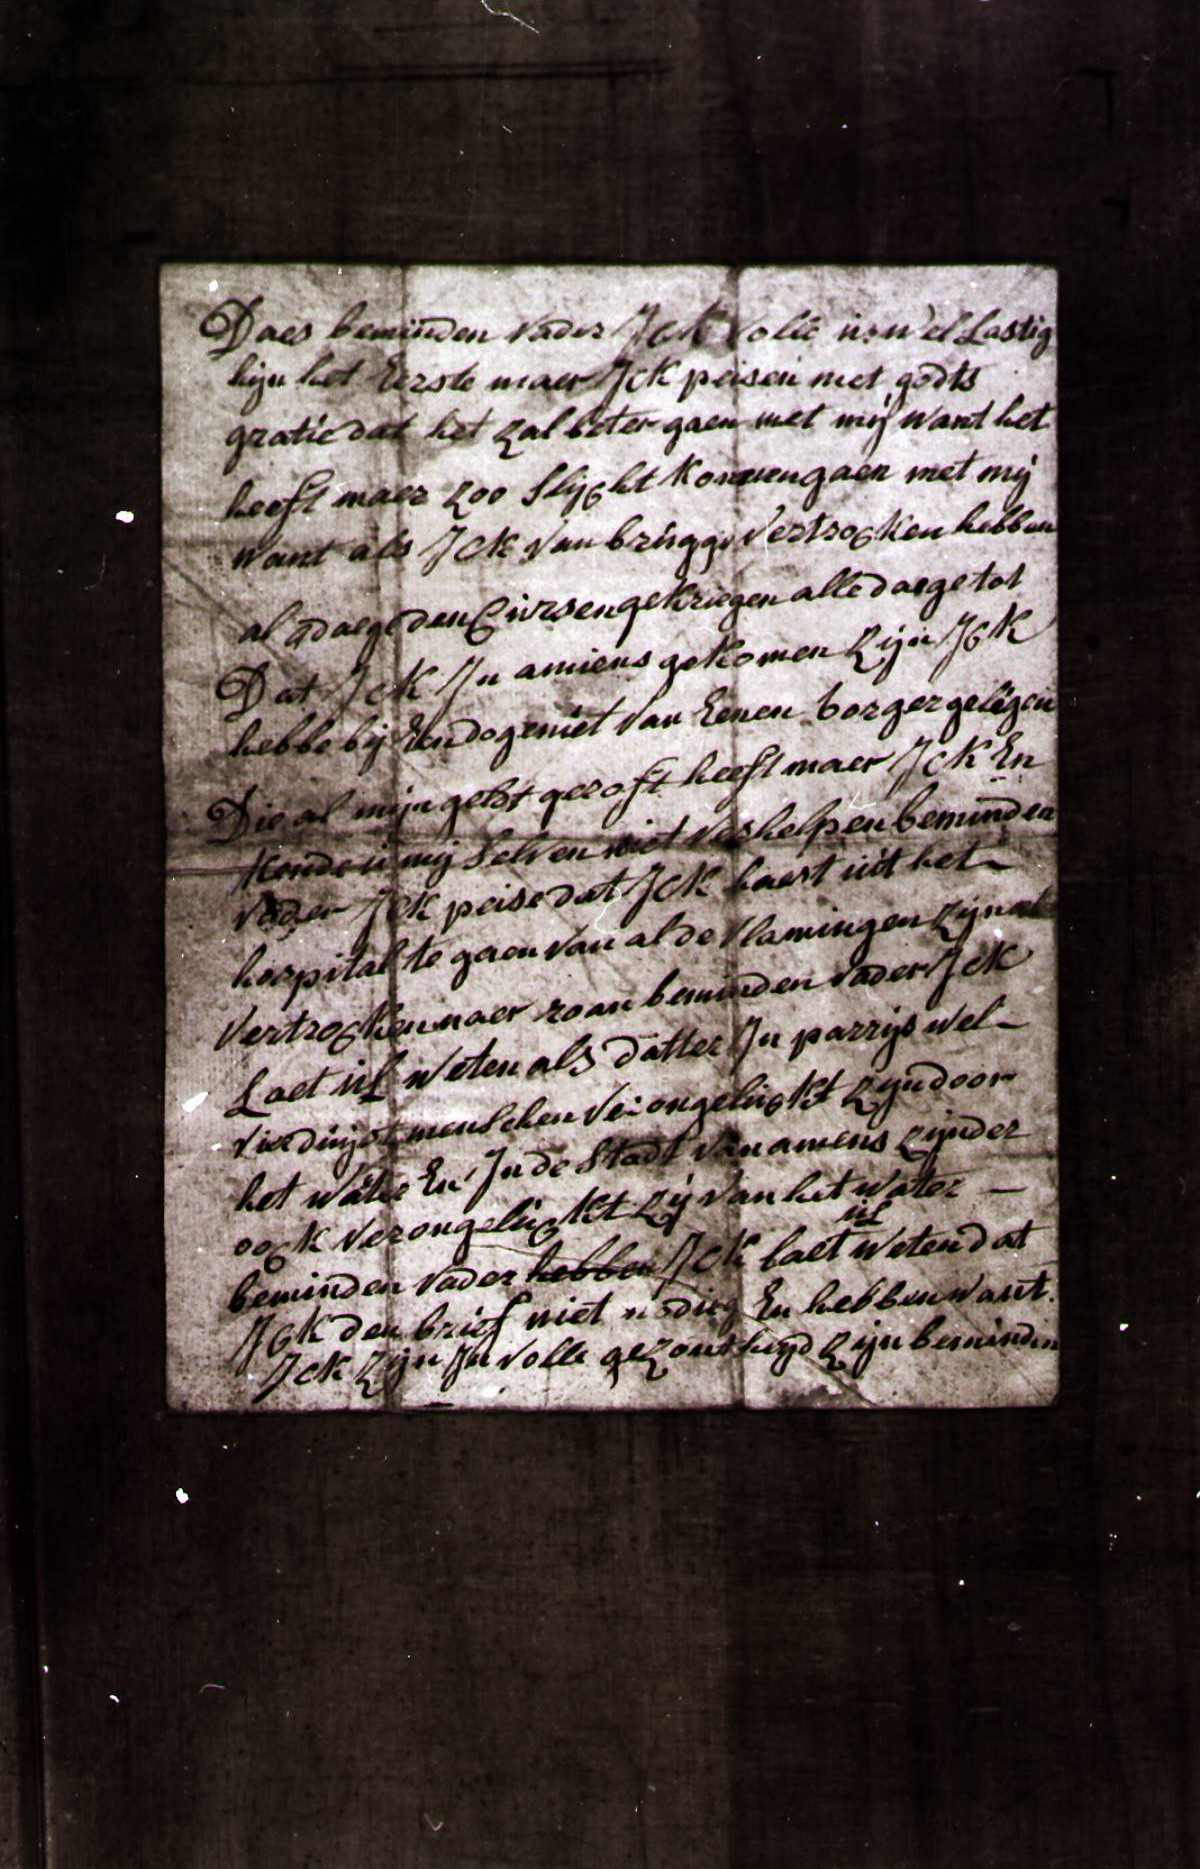 Daes beminden vader Jck volle u wel Lastig
hijn het Eerste maer Jck peisen met godts
gratie dat het zal beter gaen met mij want het
heeft maer zoo slijcht konnen gaen met mij
want als Jck van brugge vertrocken hebben
al adaege den Cursen gekriegen alle daege tot
Dat Jck Jn amiens gekomen zijn Jck
hebbe bij Een dogeniet van Eenen borger gelegen
Die al mijn geldt geroft heeft maer Jck En
Konde u mij selven niet verhelpen beminden
vader Jck peise dat Jck haest uit het
hospital te gaen van al de vlamingen zijn al
vertrocken naer roan beminden vader Jck
Laet ul weten als datter Jn parrijs wel
vierduijst menschen verongeluckt zijn door
het water En Jn de stadt van amens zijnder
oock verongeluckt zij van het water
beminden vader hebben Jck laet ul weten dat
Jck den brief niet nodieg En hebben want
Jck zijn Jn volle gezontheyd zijn beminden